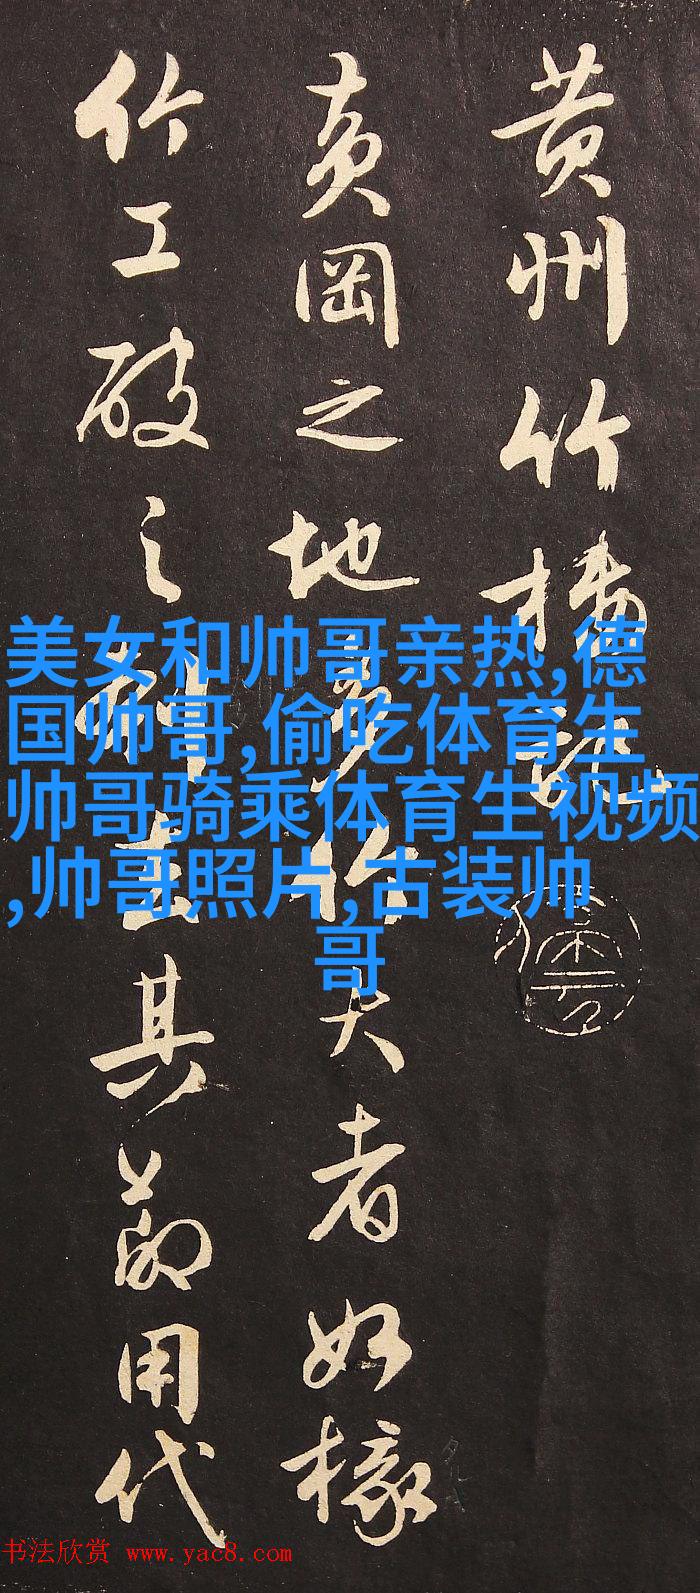 黄州竹楼记
黄冈之地多竹大者如椽
竹工破之刳去其节用代
美女和帅哥亲热,德
国帅哥,偷吃体育生
帅哥骑乘体育生视频
,帅哥照片,古装帅
哥
书法欣赏 www.yac8.com